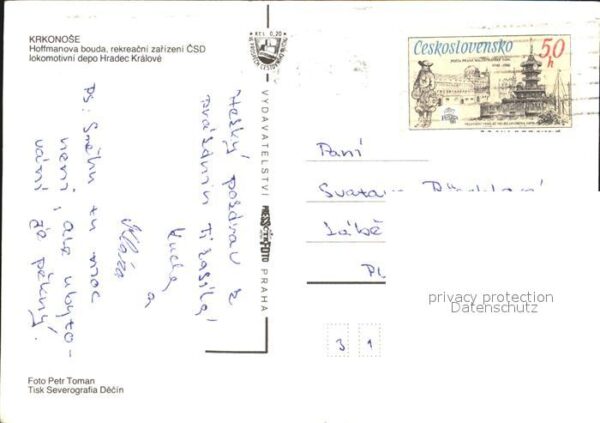 KRKONOŠE
Hoffmanova bouda, rekreační zařízení ČSD
lokomotivní depo Hradec Králové
Hezký pozdrav z
prázdnin Ti zasílá
a
Ps: Sněhu tu moc
není, ale ubyto-
vání je pěkný.
Foto Petr Toman
Tisk Severografia Děčín
VYDAVATELSTVÍ PRESSFOTO PRAHA
Kčs 0,20
Československo
50
h
Paní
Lábě
privacy protection
Datenschutz
3 1